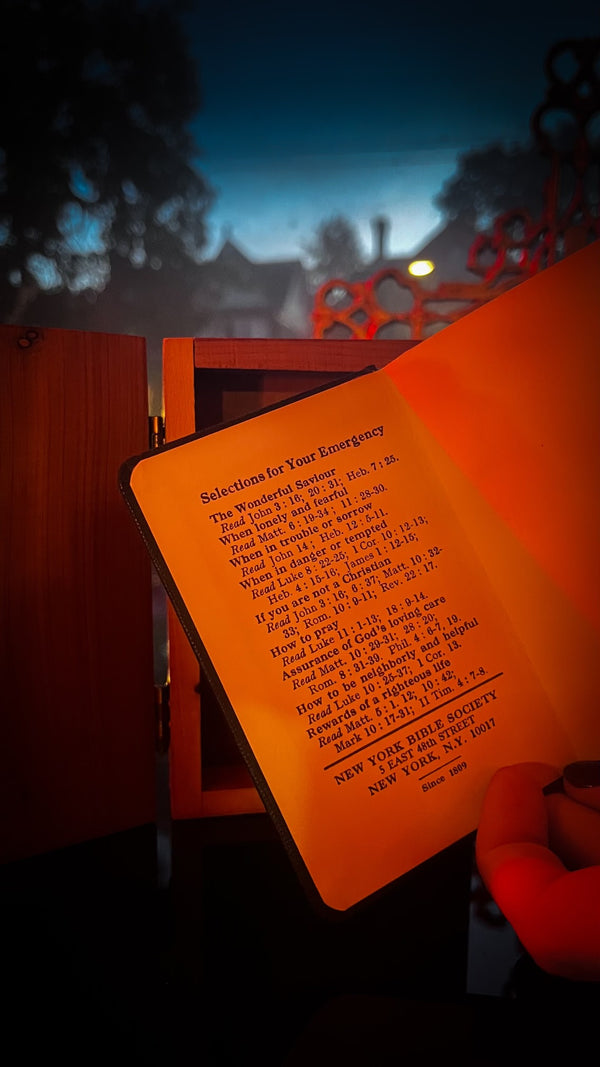 Selections for Your Emergency
The Wonderful Saviour
Read John 3 : 16; 20 : 31; Heb. 7 : 25.
When lonely and fearful
Read Matt. 6 : 19-34 ; 11 : 28-30.
When in trouble or sorrow
Read John 14 ; Heb. 12 : 5-11.
When in danger or tempted
Read Luke 8 : 22-25; 1 Cor. 10 : 12-13;
Heb. 4 : 15-16; James 1 : 12-15;
If you are not a Christian
Read John 3 : 16; 6 : 37; Matt. 10 : 32-
33; Rom. 10 : 9-11; Rev. 22 : 17.
How to pray
Read Luke 11 : 1-13; 18 : 9-14.
Assurance of God's loving care
Read Matt. 10 : 29-31; 28 : 20;
Rom. 8 : 31-39. Phil. 4 : 6-7, 19.
How to be neighborly and helpful
Read Luke 10 : 25-37; 1 Cor. 13.
Rewards of a righteous life
Read Matt. 5 : 1. 12; 10 : 42;
Mark 10 : 17-31; 11 Tim. 4 : 7-8.
NEW YORK BIBLE SOCIETY
5 EAST 48th STREET
NEW YORK, N.Y. 10017
Since 1809